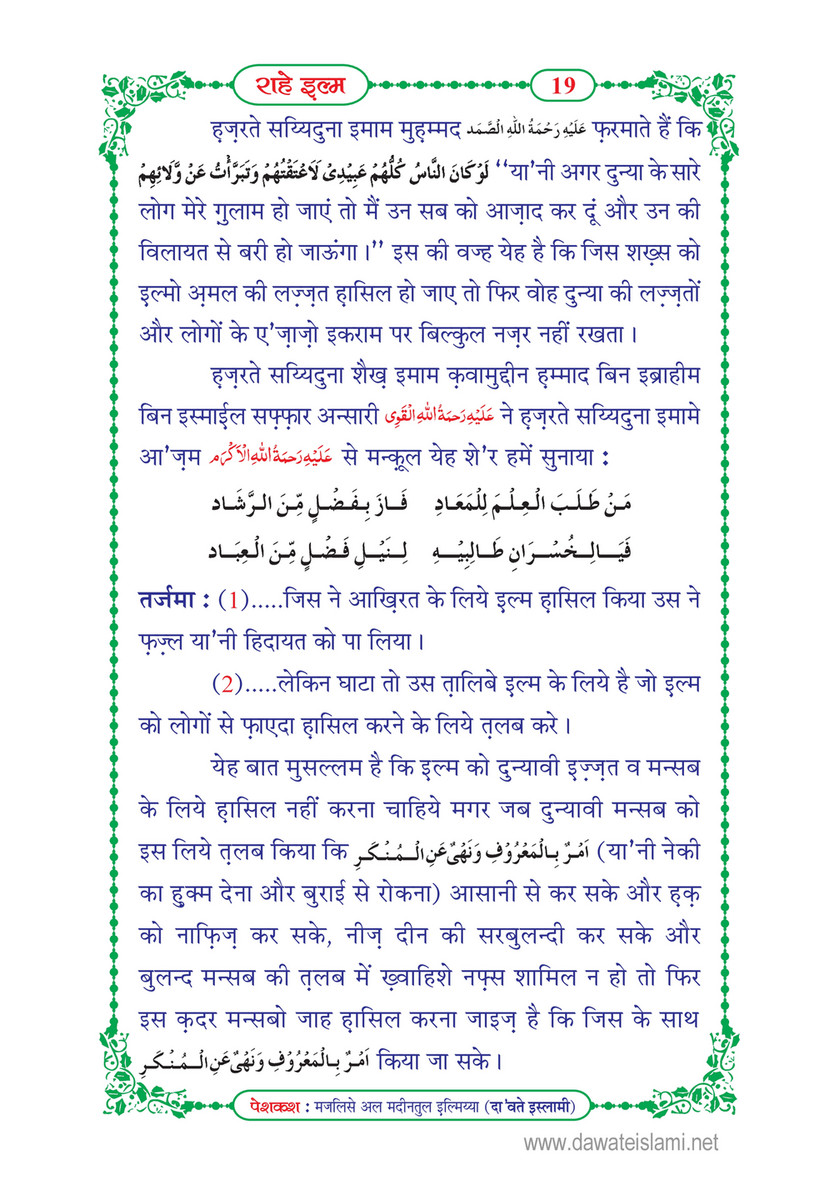 राहे इल्म
19
हज़रते सय्यिदुना इमाम मुहम्मद عَلَيْهِ رَحْمَةُ اللهِ الصَّمَد फ़रमाते हैं कि
لَوْ كَانَ النَّاسُ كُلُّهُمْ عَبِيْدِىْ لَاَعْتَقْتُهُمْ وَتَبَرَّأْتُ عَنْ وَّلَائِهِمْ ‘‘या’नी अगर दुन्या के सारे
लोग मेरे ग़ुलाम हो जाएं तो मैं उन सब को आज़ाद कर दूं और उन की
विलायत से बरी हो जाऊंगा।’’ इस की वज्ह येह है कि जिस शख़्स को
इल्मो अ़मल की लज़्ज़त ह़ासिल हो जाए तो फिर वोह दुन्या की लज़्ज़तों
और लोगों के ए’ज़ाज़ो इकराम पर बिल्कुल नज़र नहीं रखता।
हज़रते सय्यिदुना शैख़ इमाम क़वामुद्दीन ह़म्माद बिन इब्राहीम
बिन इस्माईल सफ़्फ़ार अन्सारी عَلَيْهِ رَحْمَةُ اللهِ الْقَوِى ने हज़रते सय्यिदुना इमामे
आ’ज़म عَلَيْهِ رَحْمَةُ اللهِ الْاَكْرَم से मन्क़ूल येह शे’र हमें सुनाया :
مَنْ طَلَبَ الْعِلْمَ لِلْمَعَادِ فَازَ بِفَضْلٍ مِّنَ الرَّشَادِ
فَيَالِخُسْرَانِ طَالِبِيْهِ لِنَيْلِ فَضْلٍ مِّنَ الْعِبَادِ
तर्जमा : (1).....जिस ने आख़िरत के लिये इल्म ह़ासिल किया उस ने
फ़ज़्ल या’नी हिदायत को पा लिया।
(2).....लेकिन घाटा तो उस त़ालिबे इल्म के लिये है जो इल्म
को लोगों से फ़ाएदा ह़ासिल करने के लिये त़लब करे।
येह बात मुसल्लम है कि इल्म को दुन्यावी इज़्ज़त व मन्सब
के लिये ह़ासिल नहीं करना चाहिये मगर जब दुन्यावी मन्सब को
इस लिये त़लब किया कि اَمْرٌ بِالْمَعْرُوْفِ وَنَهْىٌ عَنِ الْمُنْكَرِ (या’नी नेकी
का हुक्म देना और बुराई से रोकना) आसानी से कर सके और ह़क़
को नाफ़िज़ कर सके, नीज़ दीन की सरबुलन्दी कर सके और
बुलन्द मन्सब की त़लब में ख़्वाहिशे नफ़्स शामिल न हो तो फिर
इस क़दर मन्सबो जाह ह़ासिल करना जाइज़ है कि जिस के साथ
اَمْرٌ بِالْمَعْرُوْفِ وَنَهْىٌ عَنِ الْمُنْكَرِ किया जा सके।
पेशकश : मजलिसे अल मदीनतुल इल्मिय्या (दा'वते इस्लामी)
www.dawateislami.net